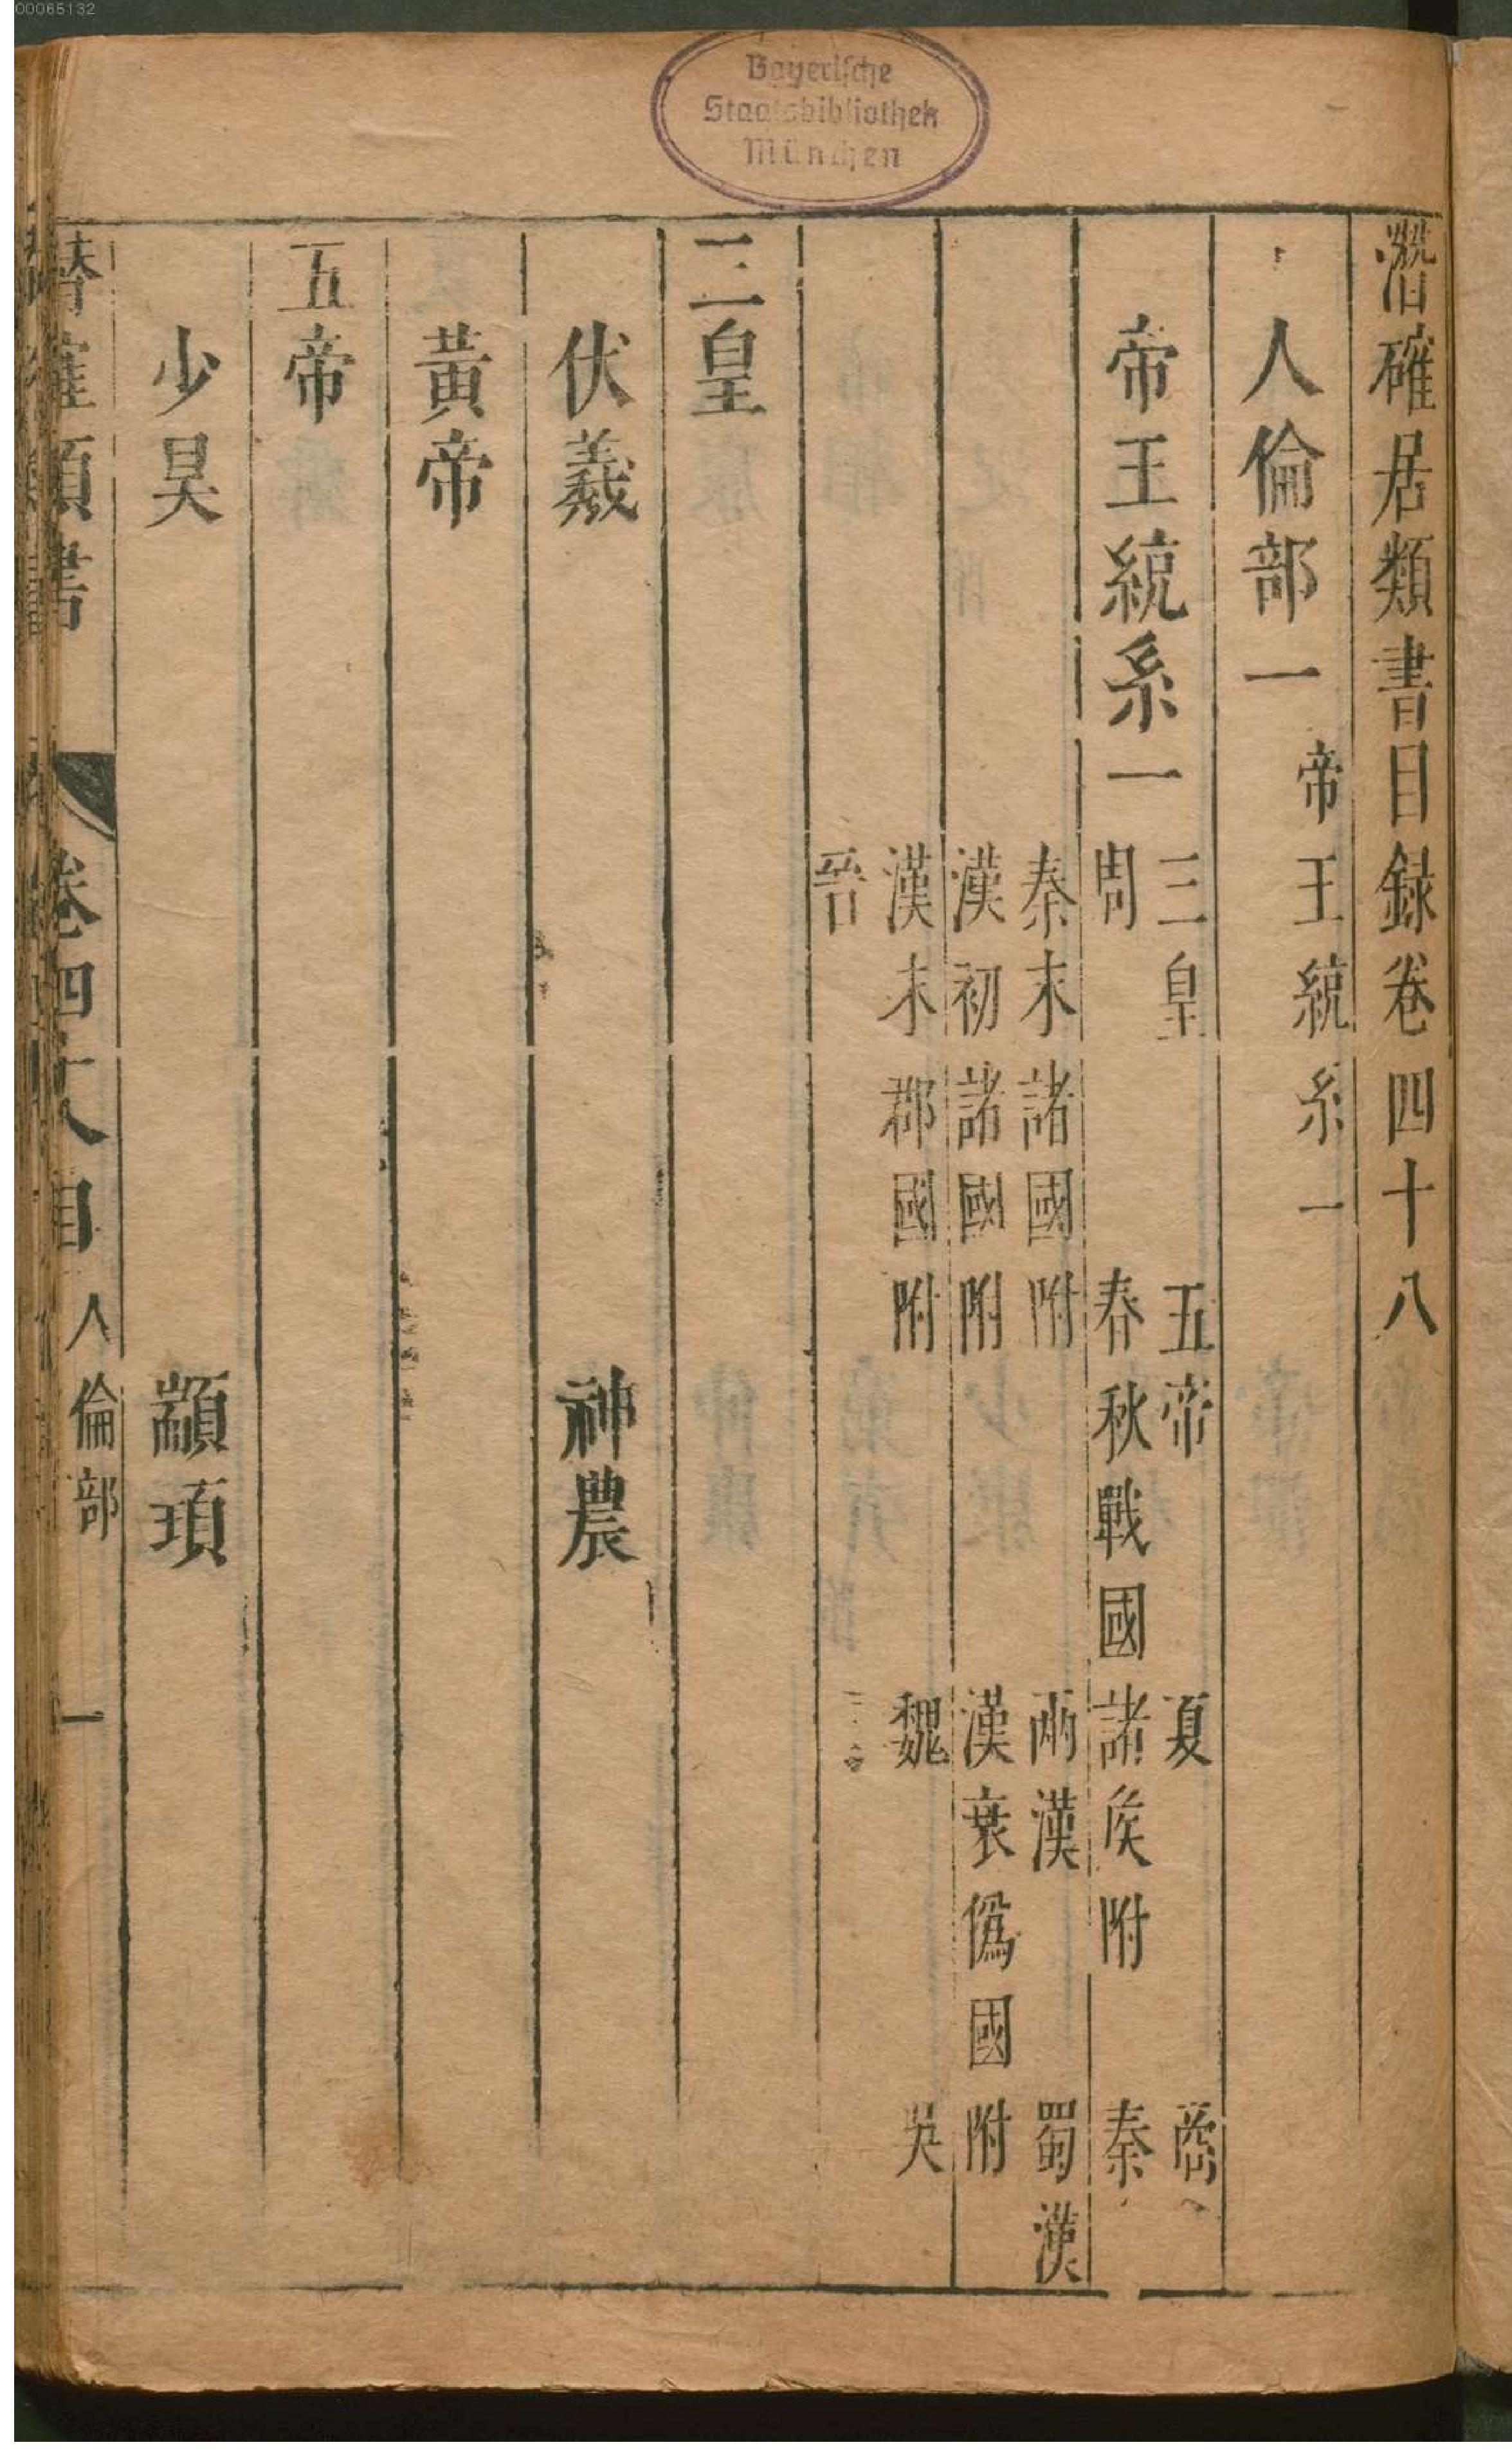 00065132
Bayerische
Staatsbibliothek
München
潛確居類書目録卷四十八
人倫部一 帝王統系一
帝王統系一
三皇 五帝 夏 商
周 春秋戰國諸矦附 秦
秦末諸國附 兩漢 蜀漢
漢初諸國附 漢衰僞國附
漢末郡國附 魏 吳
晉
三皇
伏羲 神農
黃帝
五帝
少昊 顓頊
潛確類書 卷四十八目 人倫部 一